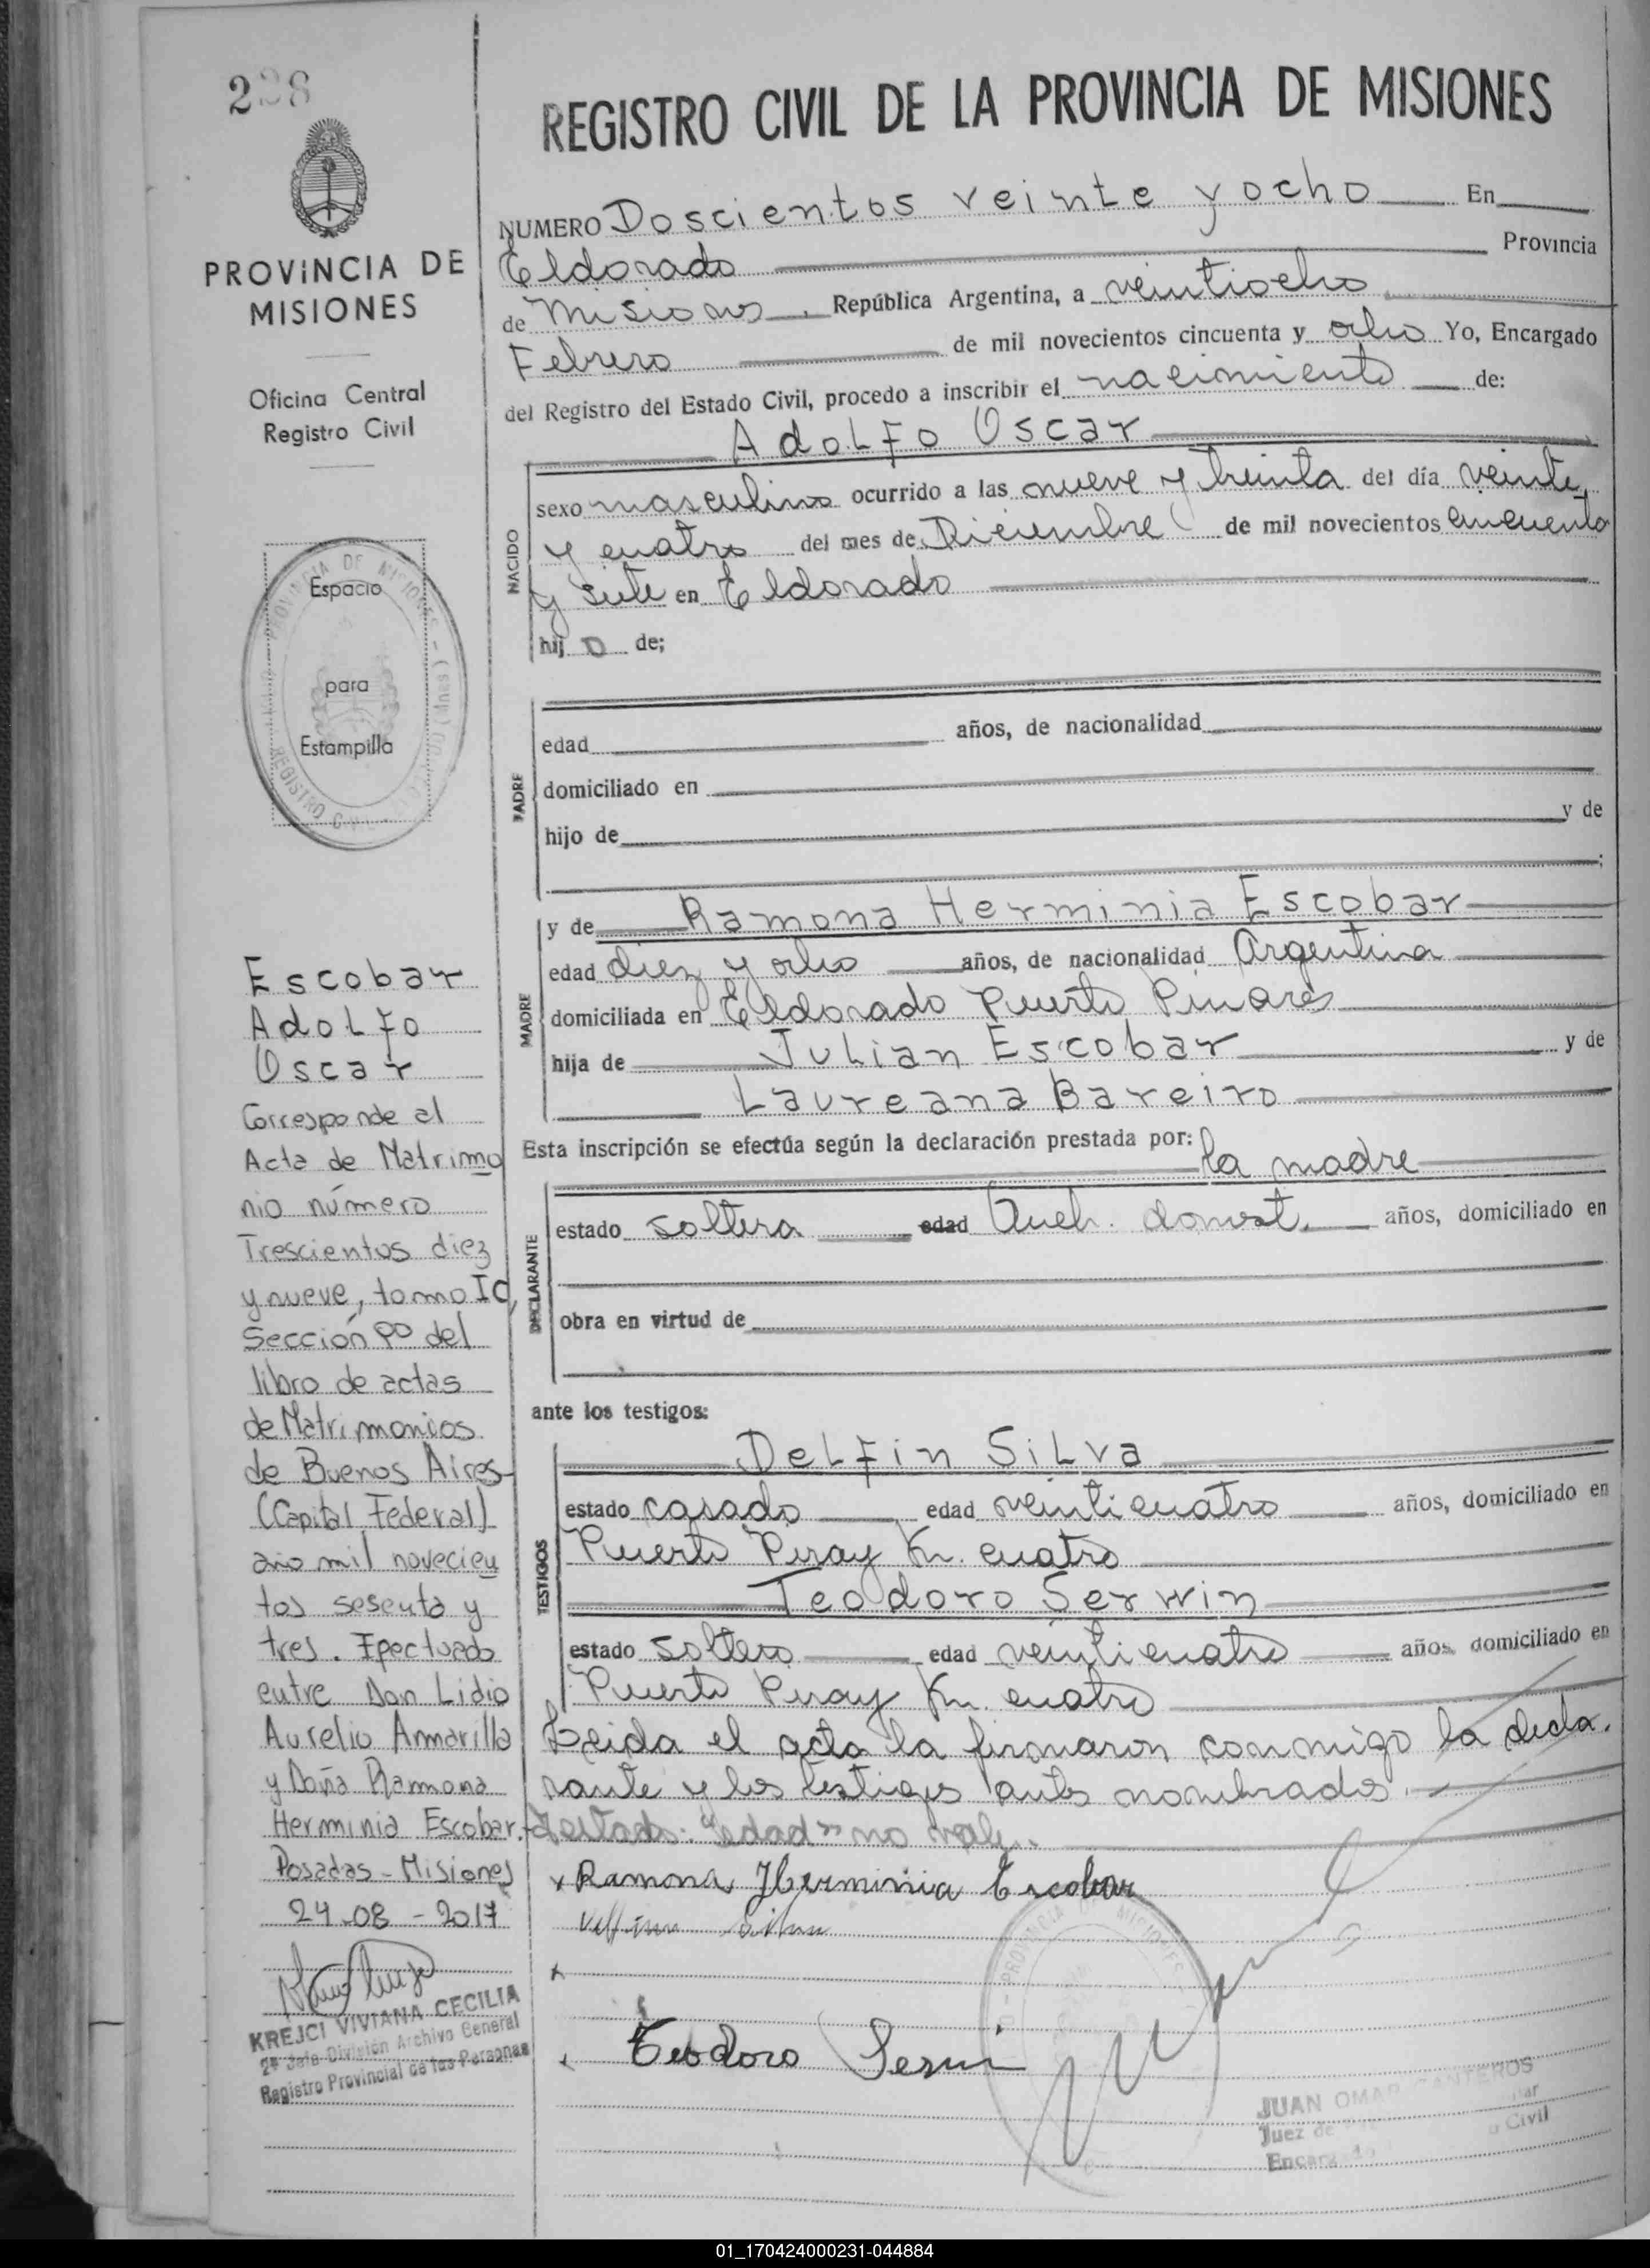 228
PROVINCIA DE
MISIONES
Oficina Central
Registro Civil
Espacio
para
Estampilla
Escobar
Adolfo
Oscar
Corresponde al
Acta de Matrimo
nio número
Trescientos diez
y nueve, tomo
Sección del
libro de actas
de Matrimonios
de Buenos Aires
(Capital Federal)
año mil novecien
tos sesenta y
tres. Efectuado
entre Don Lidio
Aurelio Amarilla
y Doña Ramona
Herminia Escobar.
Posadas - Misiones
24-08-2017
KREJCI VIVIANA CECILIA
2º Jefe División Archivo General
Registro Provincial de las Personas
REGISTRO CIVIL DE LA PROVINCIA DE MISIONES
NUMERO Doscientos veinte y ocho En
Eldorado Provincia
de Misiones, República Argentina, a veintiocho
Febrero de mil novecientos cincuenta y ocho Yo, Encargado
del Registro del Estado Civil, procedo a inscribir el nacimiento de:
Adolfo Oscar
NACIDO
sexo masculino ocurrido a las nueve y treinta del día veinte
y cuatro del mes de Diciembre de mil novecientos cincuenta
y siete en Eldorado
hij o de;
PADRE
edad años, de nacionalidad
domiciliado en
hijo de y de
;
MADRE
y de Ramona Herminia Escobar
edad diez y ocho años, de nacionalidad Argentina
domiciliada en Eldorado Puerto Pinares
hija de Julian Escobar y de
Laureana Bareiro
Esta inscripción se efectúa según la declaración prestada por: la madre
DECLARANTE
estado soltera edad Queh. domest. años, domiciliado en
obra en virtud de
ante los testigos:
TESTIGOS
Delfin Silva
estado casado edad veinticuatro años, domiciliado en
Puerto Piray Km. cuatro
Teodoro Serwin
estado soltero edad veinticuatro años, domiciliado en
Puerto Piray Km. cuatro
Leida el acta la firmaron conmigo la decla.
rante y los testigos antes nombrados.
Testado: "edad" no vale.
x Ramona Herminia Escobar
Delfin Silva
x
x Teodoro Serwin
JUAN OMAR CANTEROS
Juez de
Civil
01_170424000231-044884